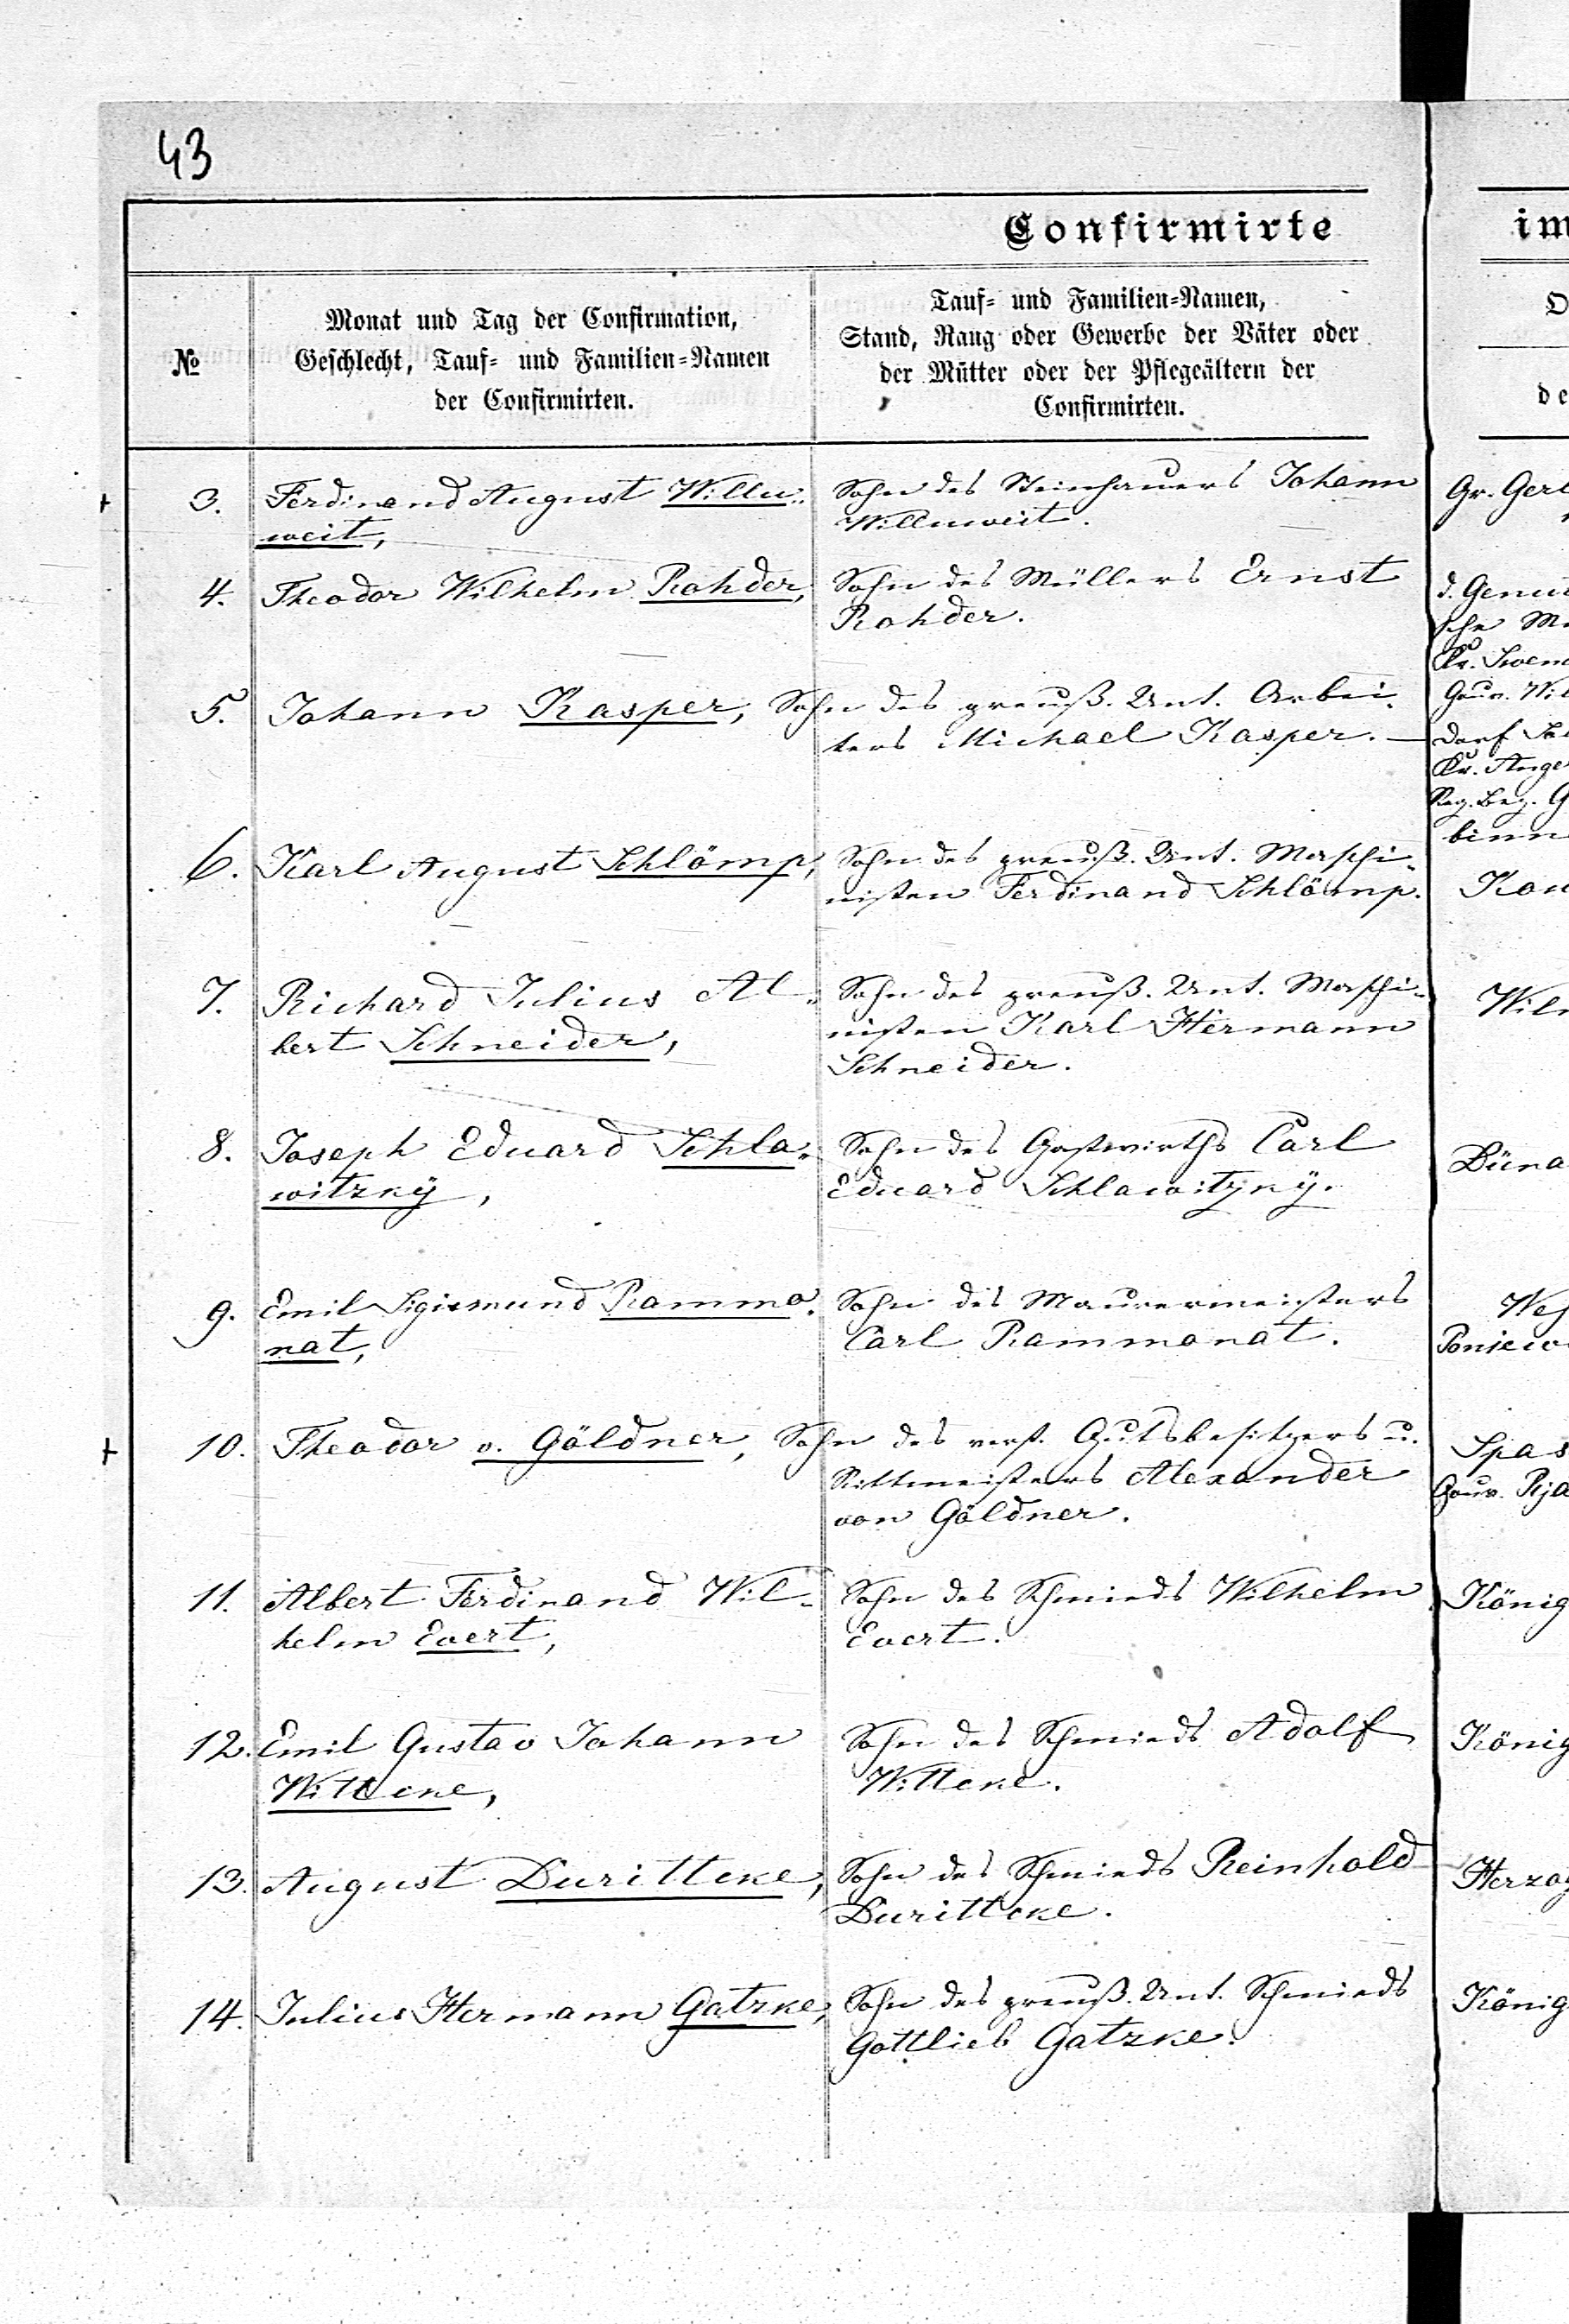 43
Confirmirte
im
№
Monat und Tag der Confirmation,
Geschlecht, Tauf- und Familien-Namen
der Confirmirten.
Tauf- und Familien-Namen,
Stand, Rang oder Gewerbe der Väter oder
der Mütter oder der Pflegeältern der
Confirmirten.
O
de
3. Ferdinand August Willu-
weit,
Sohn des Steinhauers Johann
Willuweit.
Gr. Ger
4. Theodor Wilhelm Rohder,
Sohn des Müllers Ernst
Rohder.
d. Geme
sche M
Kr. Swen
Gouv. Wil
5. Johann Kasper, Sohn des preuß. Unt. Arbei-
ters Michael Kasper. —
Dorf
Kr. Ange
Reg. Bez. G
binn
6. Karl August Schlömp,
Sohn des preuß. Unt. Maschi-
nisten Ferdinand Schlömp.
Kow
7. Richard Julius Al-
bert Schneider,
Sohn des preuß. Unt. Maschi-
nisten Karl Hermann
Schneider.
Wil
8. Joseph Eduard Schla-
witzky,
Sohn des Gastwirths Carl
Eduard Schlawitzky.
Düna
9. Emil Sigismund Rammo-
nat,
Sohn des Maurermeisters
Carl Rammonat.
We
Poniew
10. Theodor v. Göldner, Sohn des verst. Gutsbesitzers u.
Rittmeisters Alexander
von Göldner.
Spas
Gouv. Rja
11. Albert Ferdinand Wil-
helm Evert,
Sohn des Schmieds Wilhelm
Evert.
König
12. Emil Gustav Johann
Witteke,
Sohn des Schmieds Adolf
Witteke.
König
13. August Duritteke,
Sohn des Schmieds Reinhold
Duritteke.
Herzog
14. Julius Hermann Gatzke,
Sohn des preuß. Unt. Schmieds
Gottlieb Gatzke.
König